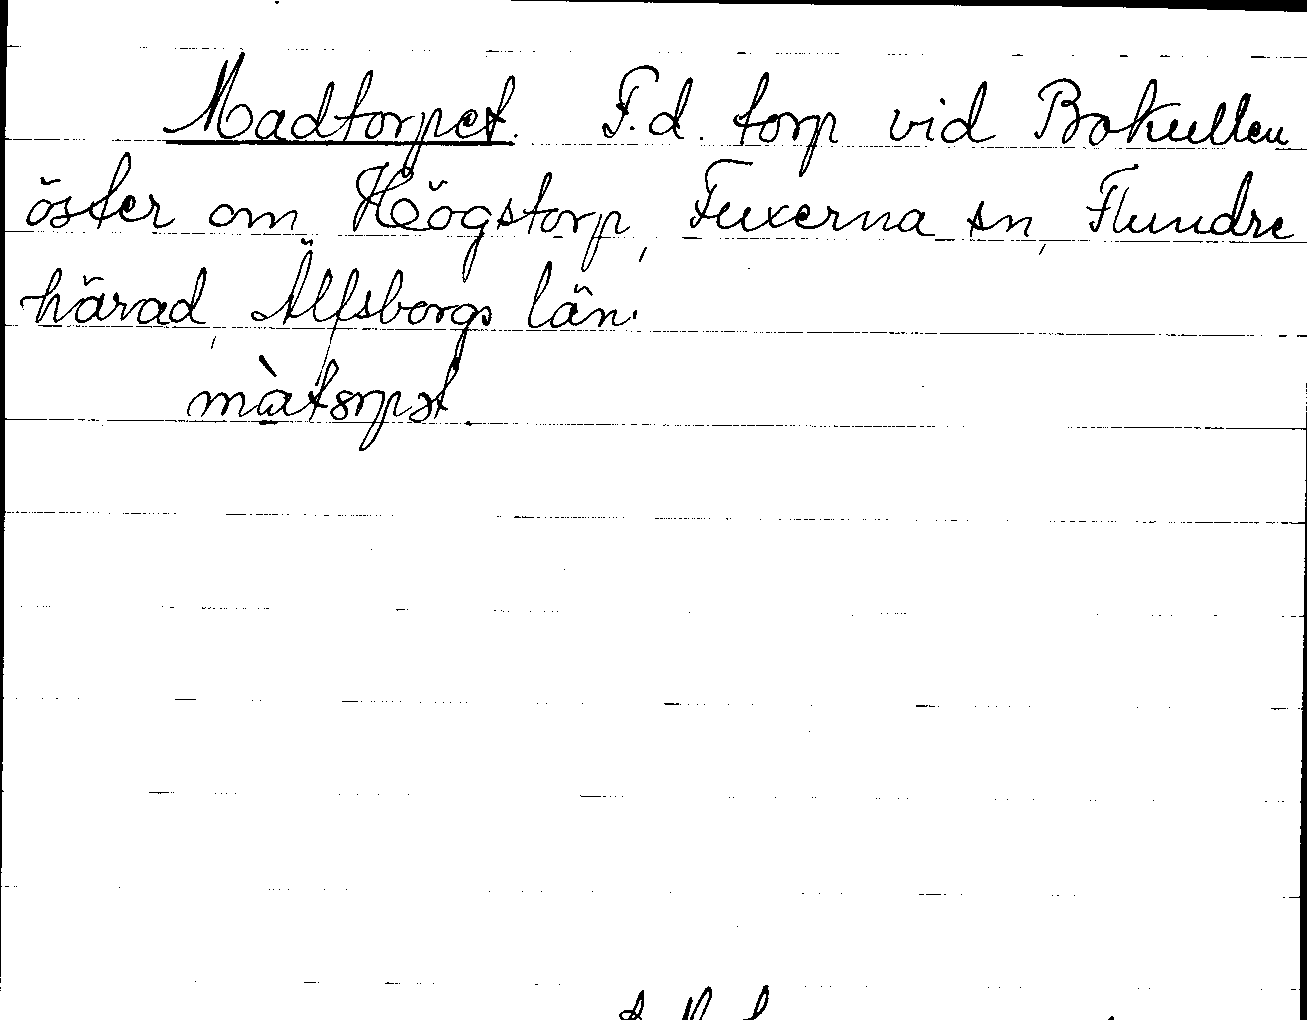 Madtorpet. F.d. torp vid Bokullen
öster om Högstorp, Fuxerna sn, Flundre
härad, Älfsborgs län.
màtɔrpət.